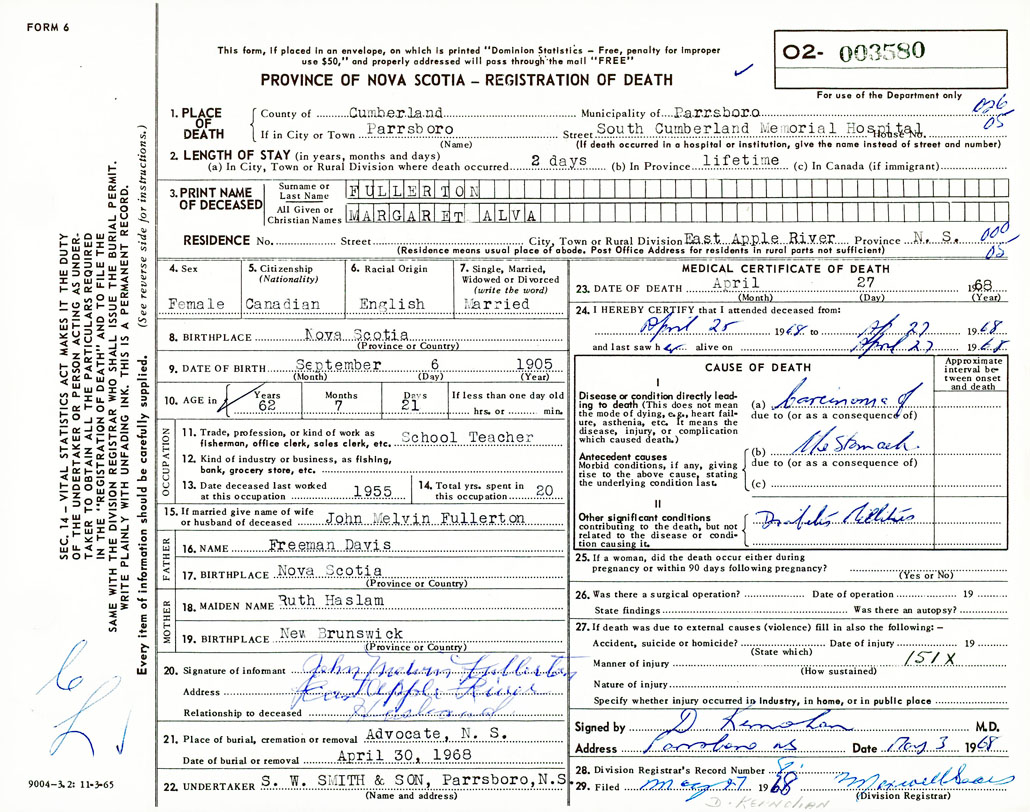 FORM 6
This form, if placed in an envelope, on which is printed "Dominion Statistics – Free, penalty for improper
use $50," and properly addressed will pass through the mail "FREE"
PROVINCE OF NOVA SCOTIA – REGISTRATION OF DEATH
O2- 003580
For use of the Department only
026
05
1. PLACE OF DEATH
County of Cumberland Municipality of Parrsboro
If in City or Town Parrsboro Street South Cumberland Memorial Hospital House No.
(Name) (If death occurred in a hospital or institution, give the name instead of street and number)
2. LENGTH OF STAY (in years, months and days)
(a) In City, Town or Rural Division where death occurred 2 days (b) In Province lifetime (c) In Canada (if immigrant)
3. PRINT NAME OF DECEASED
Surname or Last Name FULLERTON
All Given or Christian Names MARGARET ALVA
RESIDENCE No. Street City, Town or Rural Division East Apple River Province N. S.
(Residence means usual place of abode. Post Office Address for residents in rural parts not sufficient)
000
05
4. Sex Female
5. Citizenship (Nationality) Canadian
6. Racial Origin English
7. Single, Married, Widowed or Divorced (write the word) Married
8. BIRTHPLACE Nova Scotia
(Province or Country)
9. DATE OF BIRTH September 6 1905
(Month) (Day) (Year)
10. AGE in Years Months Days If less than one day old
62 7 21 hrs. or min.
OCCUPATION
11. Trade, profession, or kind of work as
fisherman, office clerk, sales clerk, etc. School Teacher
12. Kind of industry or business, as fishing,
bank, grocery store, etc.
13. Date deceased last worked
at this occupation 1955
14. Total yrs. spent in
this occupation 20
15. If married give name of wife
or husband of deceased John Melvin Fullerton
FATHER
16. NAME Freeman Davis
17. BIRTHPLACE Nova Scotia
(Province or Country)
MOTHER
18. MAIDEN NAME Ruth Haslam
19. BIRTHPLACE New Brunswick
(Province or Country)
20. Signature of informant John Melvin Fullerton
Address East Apple River
Relationship to deceased Husband
21. Place of burial, cremation or removal Advocate, N. S.
Date of burial or removal April 30, 1968
22. UNDERTAKER S. W. SMITH & SON, Parrsboro, N.S.
(Name and address)
MEDICAL CERTIFICATE OF DEATH
23. DATE OF DEATH April 27 1968
(Month) (Day) (Year)
24. I HEREBY CERTIFY that I attended deceased from:
April 25 1968 to Ap 27 1968
and last saw her alive on April 27 1968
CAUSE OF DEATH
Approximate interval between onset and death
I
Disease or condition directly leading to death (This does not mean the mode of dying, e.g., heart failure, asthenia, etc. It means the disease, injury, or complication which caused death.)
(a) Carcinoma of
due to (or as a consequence of)
Antecedent causes
Morbid conditions, if any, giving rise to the above cause, stating the underlying condition last.
(b) the Stomach
due to (or as a consequence of)
(c)
II
Other significant conditions
contributing to the death, but not related to the disease or condition causing it.
Diabetes Mellitus
25. If a woman, did the death occur either during
pregnancy or within 90 days following pregnancy?
(Yes or No)
26. Was there a surgical operation? Date of operation 19
State findings Was there an autopsy?
27. If death was due to external causes (violence) fill in also the following: –
Accident, suicide or homicide? Date of injury 19
(State which)
Manner of injury 151X
(How sustained)
Nature of injury
Specify whether injury occurred in industry, in home, or in public place
Signed by D Kernohan M.D.
Address Parrsboro NS Date May 3 1968
28. Division Registrar's Record Number
29. Filed May 27 1968 Maxwell
(Division Registrar)
D. KERNOHAN
SEC. 14 – VITAL STATISTICS ACT MAKES IT THE DUTY
OF THE UNDERTAKER OR PERSON ACTING AS UNDER-
TAKER TO OBTAIN ALL THE PARTICULARS REQUIRED
IN THE "REGISTRATION OF DEATH" AND TO FILE THE
SAME WITH THE DIVISION REGISTRAR WHO SHALL ISSUE THE BURIAL PERMIT.
WRITE PLAINLY WITH UNFADING INK. THIS IS A PERMANENT RECORD.
Every item of information should be carefully supplied. (See reverse side for instructions.)
9004–3.2: 11-3-65